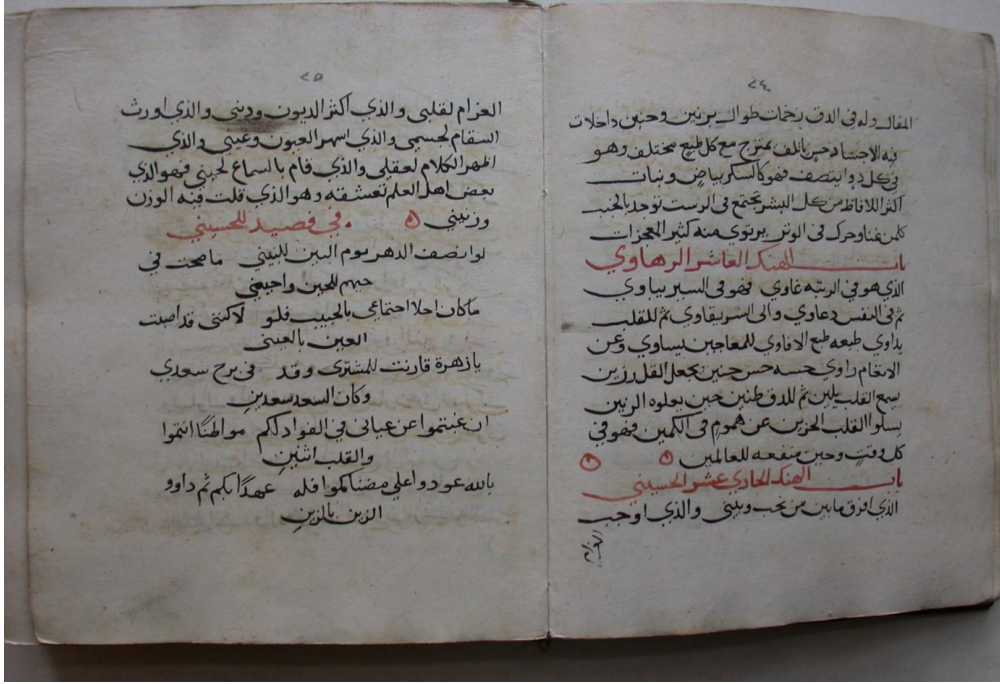 ٢٤
المقال وله في الدق زخمات طوال برنين وحين داخلات
فيه الاجساد حين ياتلف يمتزج مع كل طبع مختلف وهو
في كل دوا يتصف فهو كالسكر بياض ونبات
اكثر اللافاظ من كل البشر تجتمع في الرست توحد بالخبب
كلمن غنا وحرك في الوتر يرتوي منه كثير المعجزات
باب الهنك العاشر الرهاوي
الذي هو في الرتبه غاوي فهو في السير بياوي
ثم في النفس دعاوي والى السر يقاوي ثم للقلب
يداوي طبعه طبع الافاوي للمعاجين يساوي وعن
الانغام راوي حسه حس حنين يجعل القل رزين
يسمع القلب يلين ثم للدق طنين حين يعلوه الرنين
يسلوا القلب الحزين عن هموم في الكمين فهو في
كل وقت وحين منفعه للعالمين
باب الهنك الحادي عشر الحسيني
الذي افرق مابين من نحب وبيني والذي اوجب
الغرام
٢٥
الغرام لقلبي والذي اكثر الديون وديني والذي اورث
السقام لجسمي والذي اسهر العيون وعيني والذي
اظهر الكلام لعقلي والذي قام بالسماع لحيني فهو الذي
بعض اهل العلم تعشقه وهو الذي قلت فيه الوزن
وزنيني في قصيد للحسيني
لو انصف الدهر يوم البين للبيني ما صحت في
حبهم للحين واحيني
ما كان احلا اجتماعي بالحبيب فلو لاكنني قد اصبت
العين بالعيني
يا زهرة قارنت للمشتري وقد في برج سعدي
وكان السعد سعدين
ان غبتموا عن عياني في الفواد لكم مواطنًا انتموا
والقلب اثنين
بالله عودوا علي مضناكموا فله عهدًا بكم ثم داوو
الزين بالزين